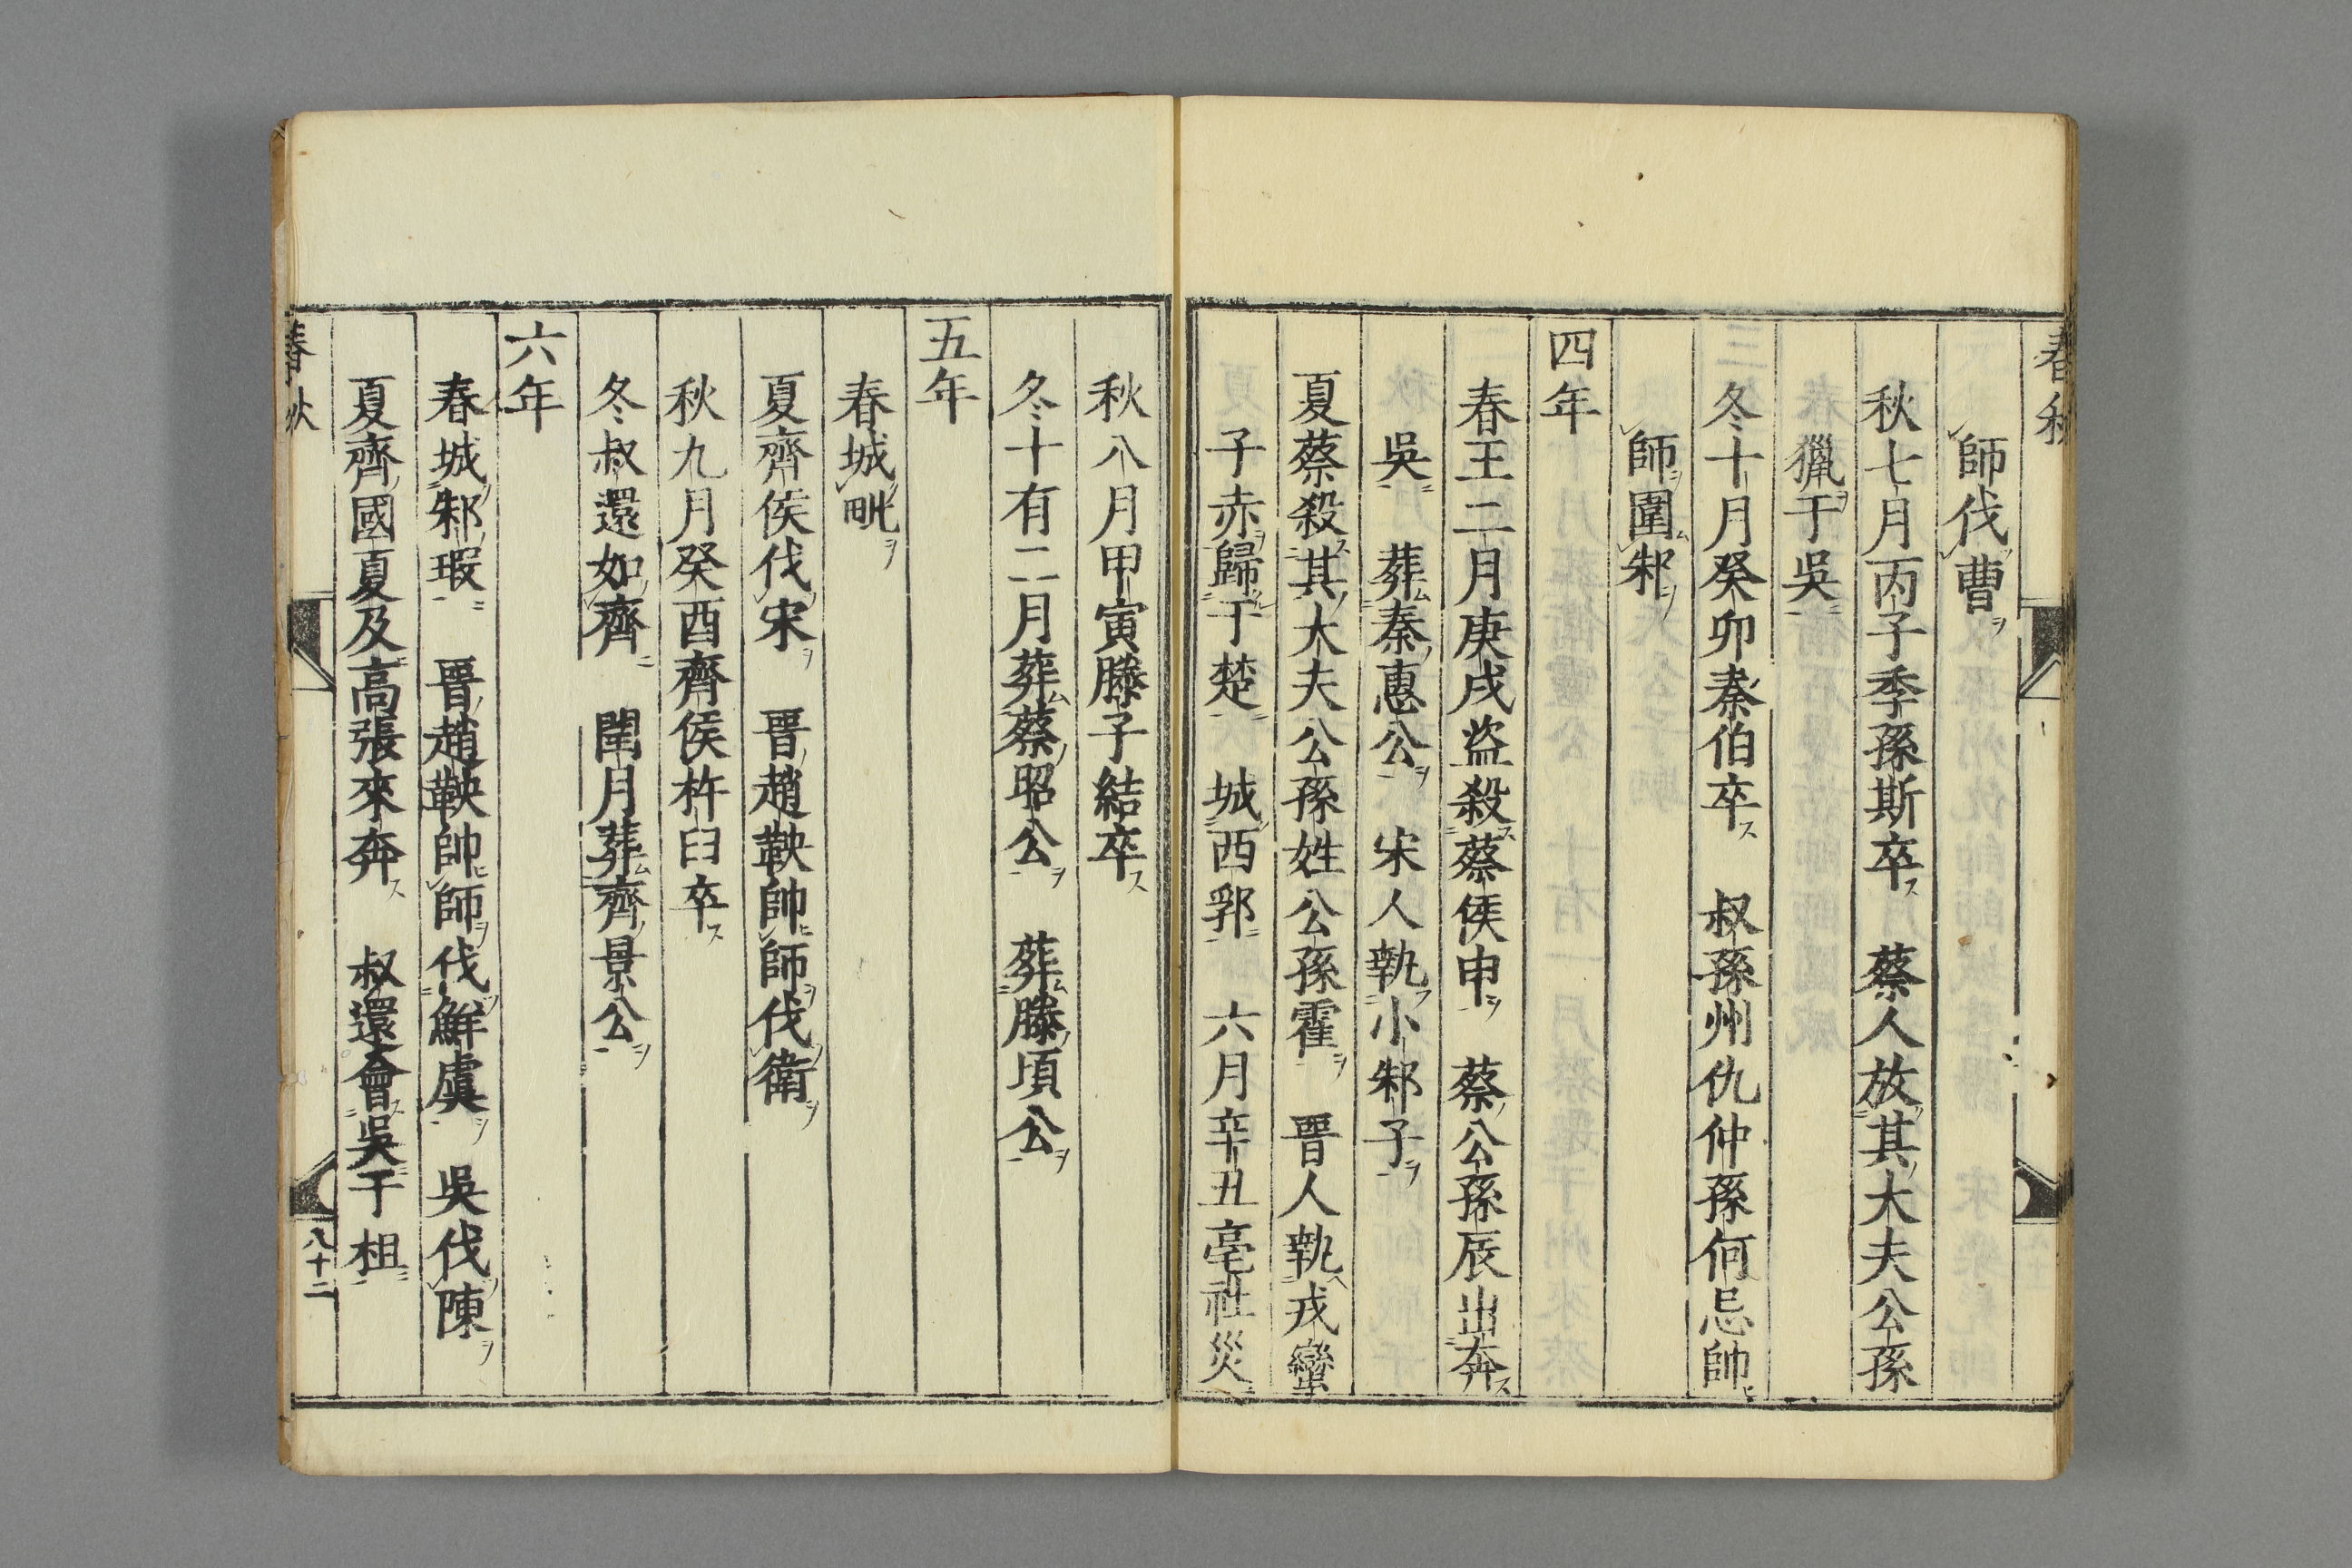 春秋
師伐曹
秋七月丙子季孫斯卒 蔡人放其大夫公孫
獵于吳
冬十月癸卯秦伯卒 叔孫州仇仲孫何忌帥
師圍邾
四年
春王二月庚戌盜殺蔡侯申 蔡公孫辰出奔
吳 葬秦惠公 宋人執小邾子
夏蔡殺其大夫公孫姓公孫霍 晉人執戎蠻
子赤歸于楚 城西郛 六月辛丑亳社災
秋八月甲寅滕子結卒
冬十有二月葬蔡昭公 葬滕頃公
五年
春城毗
夏齊侯伐宋 晉趙鞅帥師伐衛
秋九月癸酉齊侯杵臼卒
冬叔還如齊 閏月葬齊景公
六年
春城邾瑕 晉趙鞅帥師伐鮮虞 吳伐陳
夏齊國夏及高張來奔 叔還會吳于柤
春秋
八十二